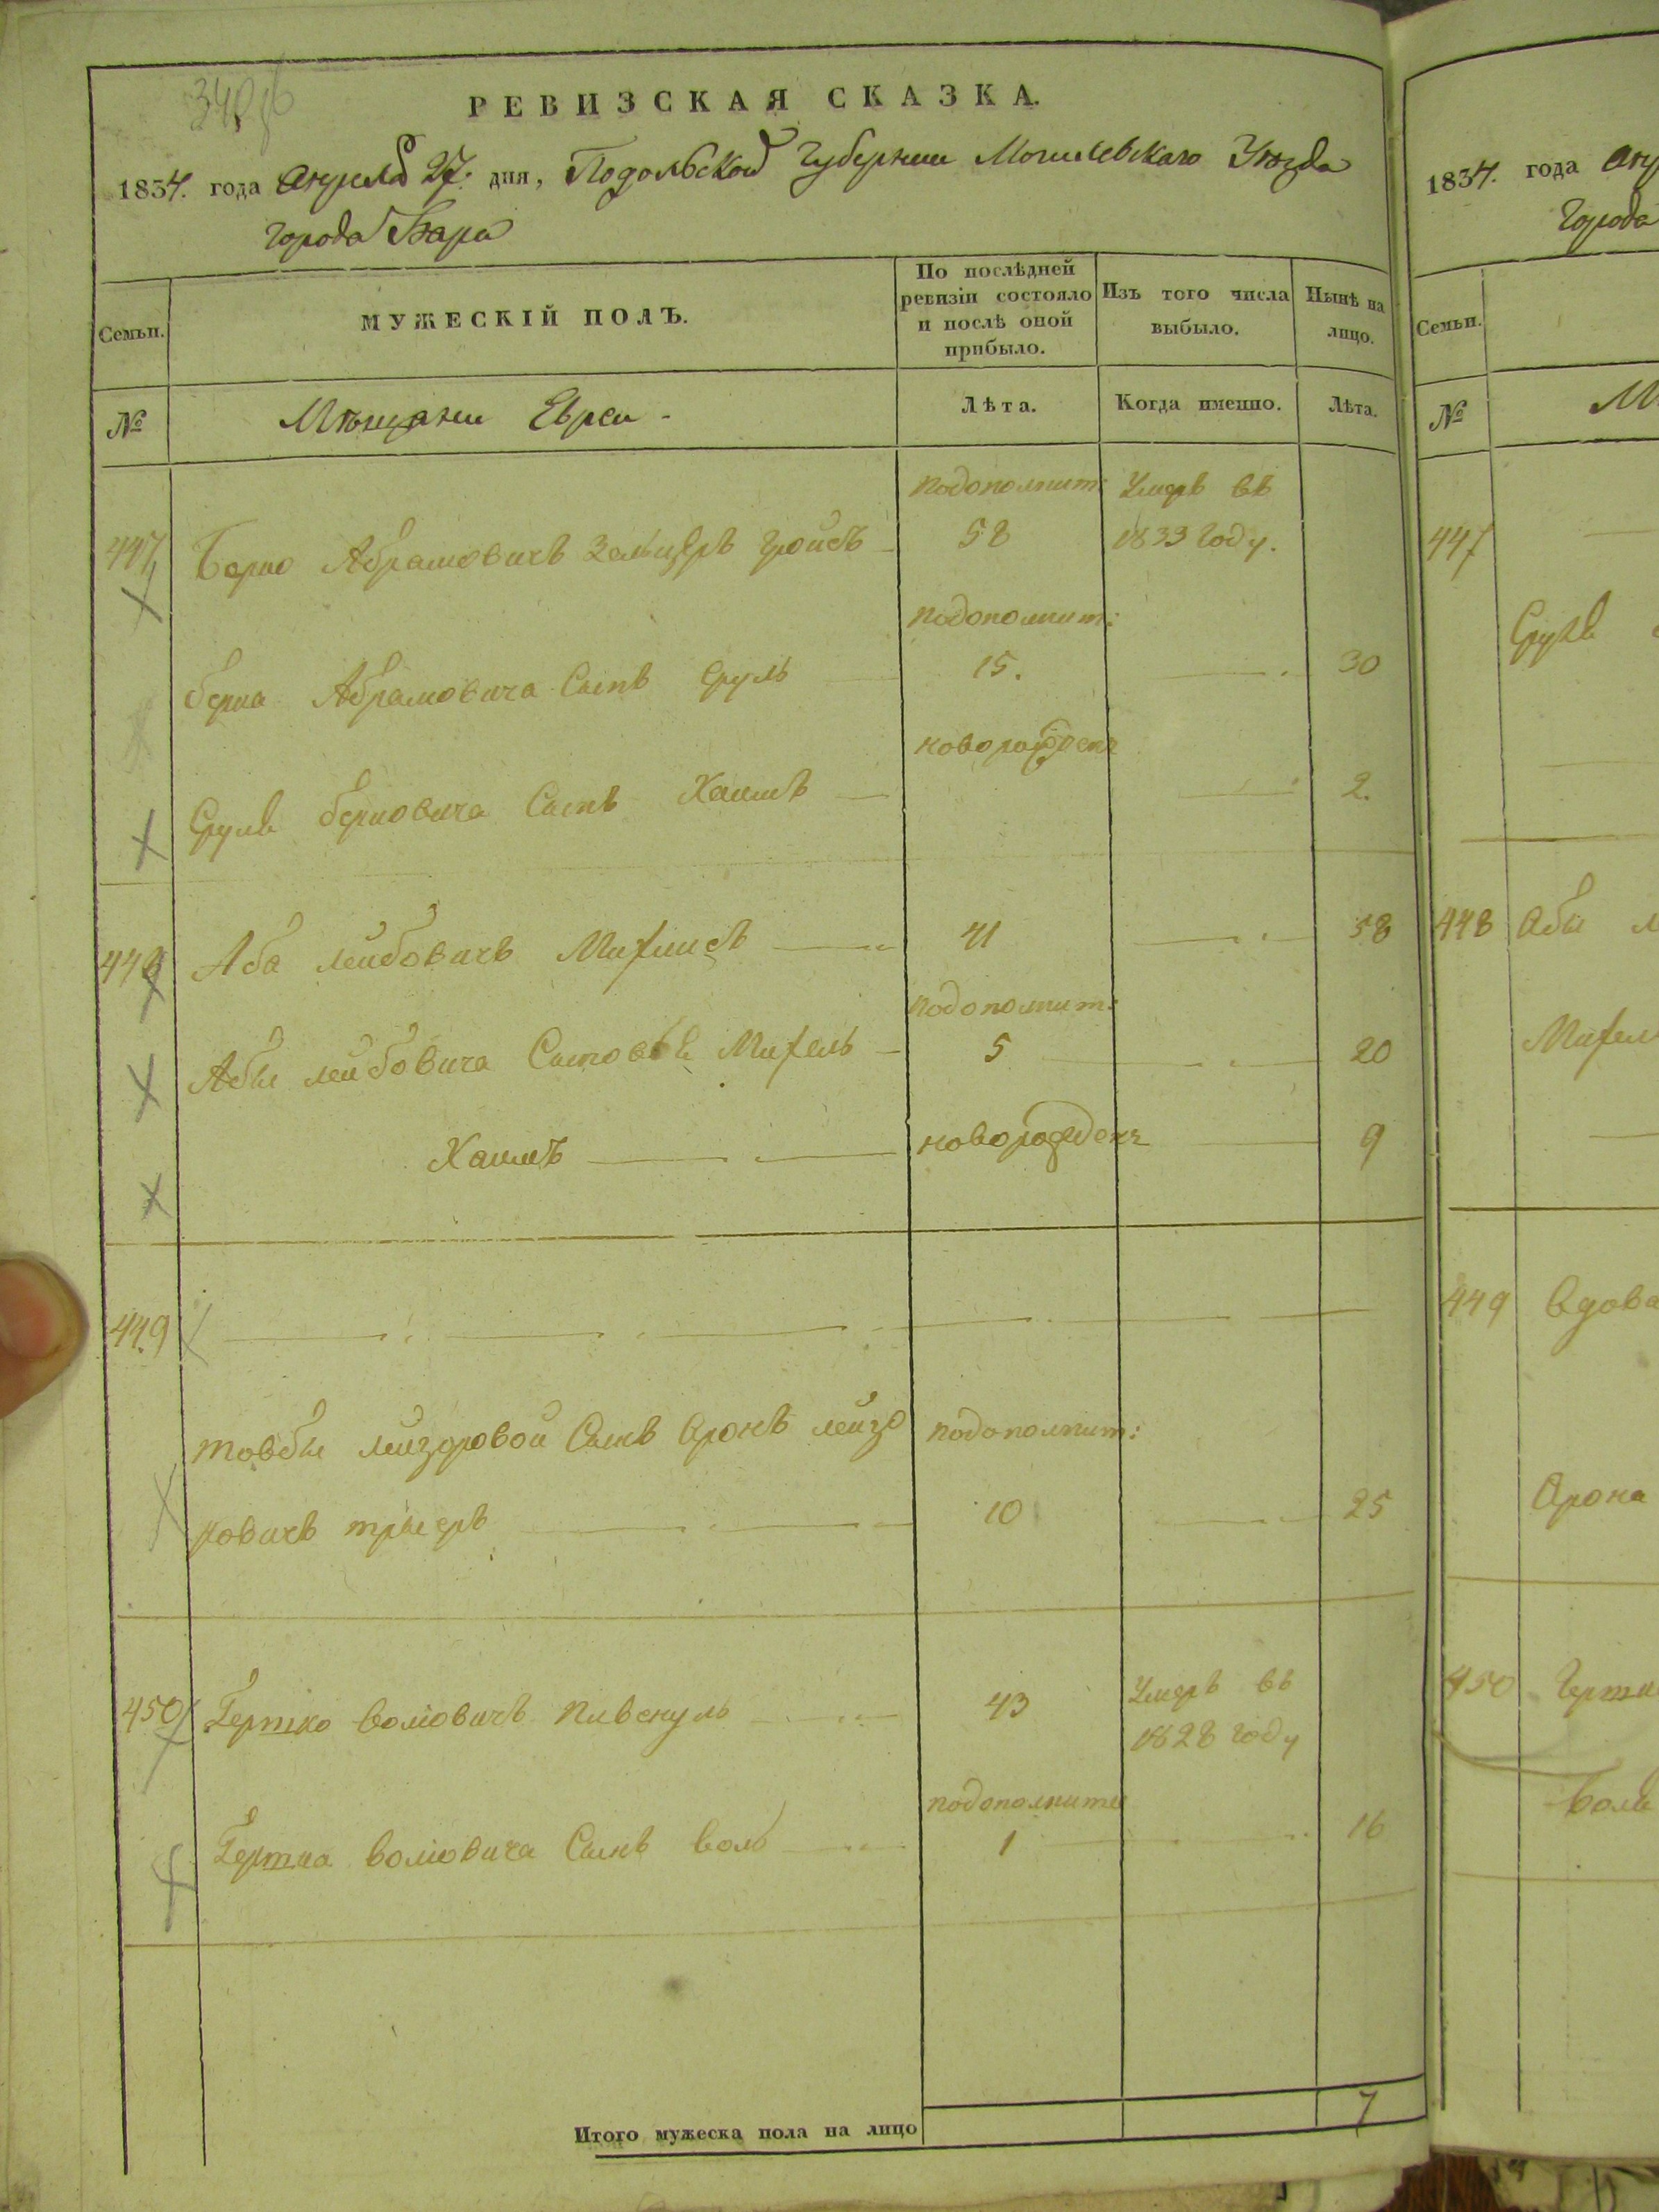 РЕВИЗСКАЯ СКАЗКА.
1834. года Апреля 27. дня, Подольской Губернии Могилевскаго Уезда
города Бара
Семьи.
МУЖЕСКІЙ ПОЛЪ.
По послѣдней ревизіи состояло и послѣ оной прибыло.
Изъ того числа выбыло.
Нынѣ на лицо.
№
Мѣщани Евреи
Лѣта.
Когда именно.
Лѣта.
подополнит: Умеръ въ
447 Берко Абрамовичъ 58 1833 году.
подополнит:
Берка Абрамовича Сынъ Сруль 15. 30
новорожден
Сруля Берковича Сынъ Хаимъ 2.
448 Аба Лейбовичъ 41 58
подополнит:
Абы Лейбовича Сыновья 5 20
Хаимъ новорожден 9
449
Товбы Лейзоровой Сынъ Аронъ Лейзо подополнит:
ровичъ 10 25
450 Гершко Волковичъ 43 Умеръ въ
1828 году
подополните
Гершка Волковича Сынъ Воль 1 16
Итого мужеска пола на лицо 7
1834. года Апр
Города
Семьи.
№
М
447
Сруля
448 Абы Л
449 Вдова
Арона
450